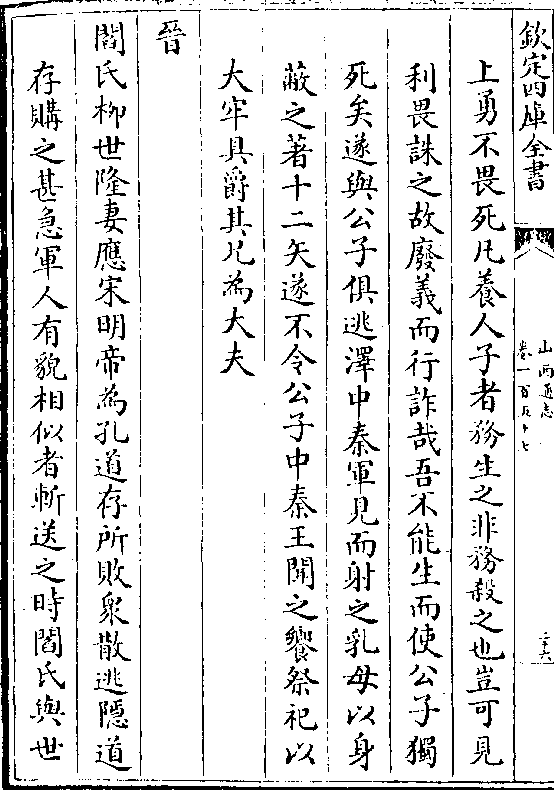 欽定四庫全書
山西通志
卷一百五十七
二十六
上勇不畏死凡養人子者務生之非務殺之也豈可見
利畏誅之故廢義而行詐哉吾不能生而使公子獨
死矣遂與公子俱逃澤中秦軍見而射之乳母以身
蔽之著十二矢遂不令公子中秦王聞之饗祭祀以
大牢具爵其兄為大夫
晉
閻氏柳世隆妻應宋明帝為孔道存所敗衆散逃隱道
存購之甚急軍人有貌相似者斬送之時閻氏與世